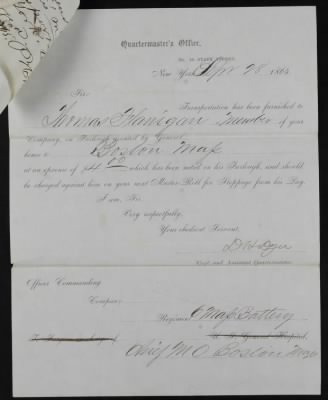 Quartermaster's Office,
No. 10 STATE STREET,
New York, Apr 28, 1864
Sir:
Transportation has been furnished to
Thomas Flanigan Member of your
Company, on Furlough granted by General
home to Boston Mass
at an expense of $4.00 which has been noted on his Furlough, and should
be charged against him on your next Muster-Roll for Stoppage from his Pay.
I am, Sir,
Very respectfully,
Your obedient Servant,
Capt. and Assistant Quartermaster.
Officer Commanding
Company
Regiment 6 Mass Battery
U. S. General Hospital,
Chief M O Boston Mass